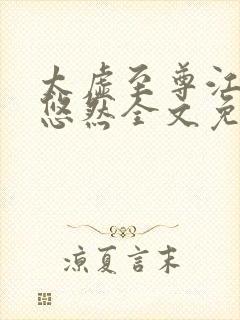 太虚至尊江
悠然全文免
凉夏言末